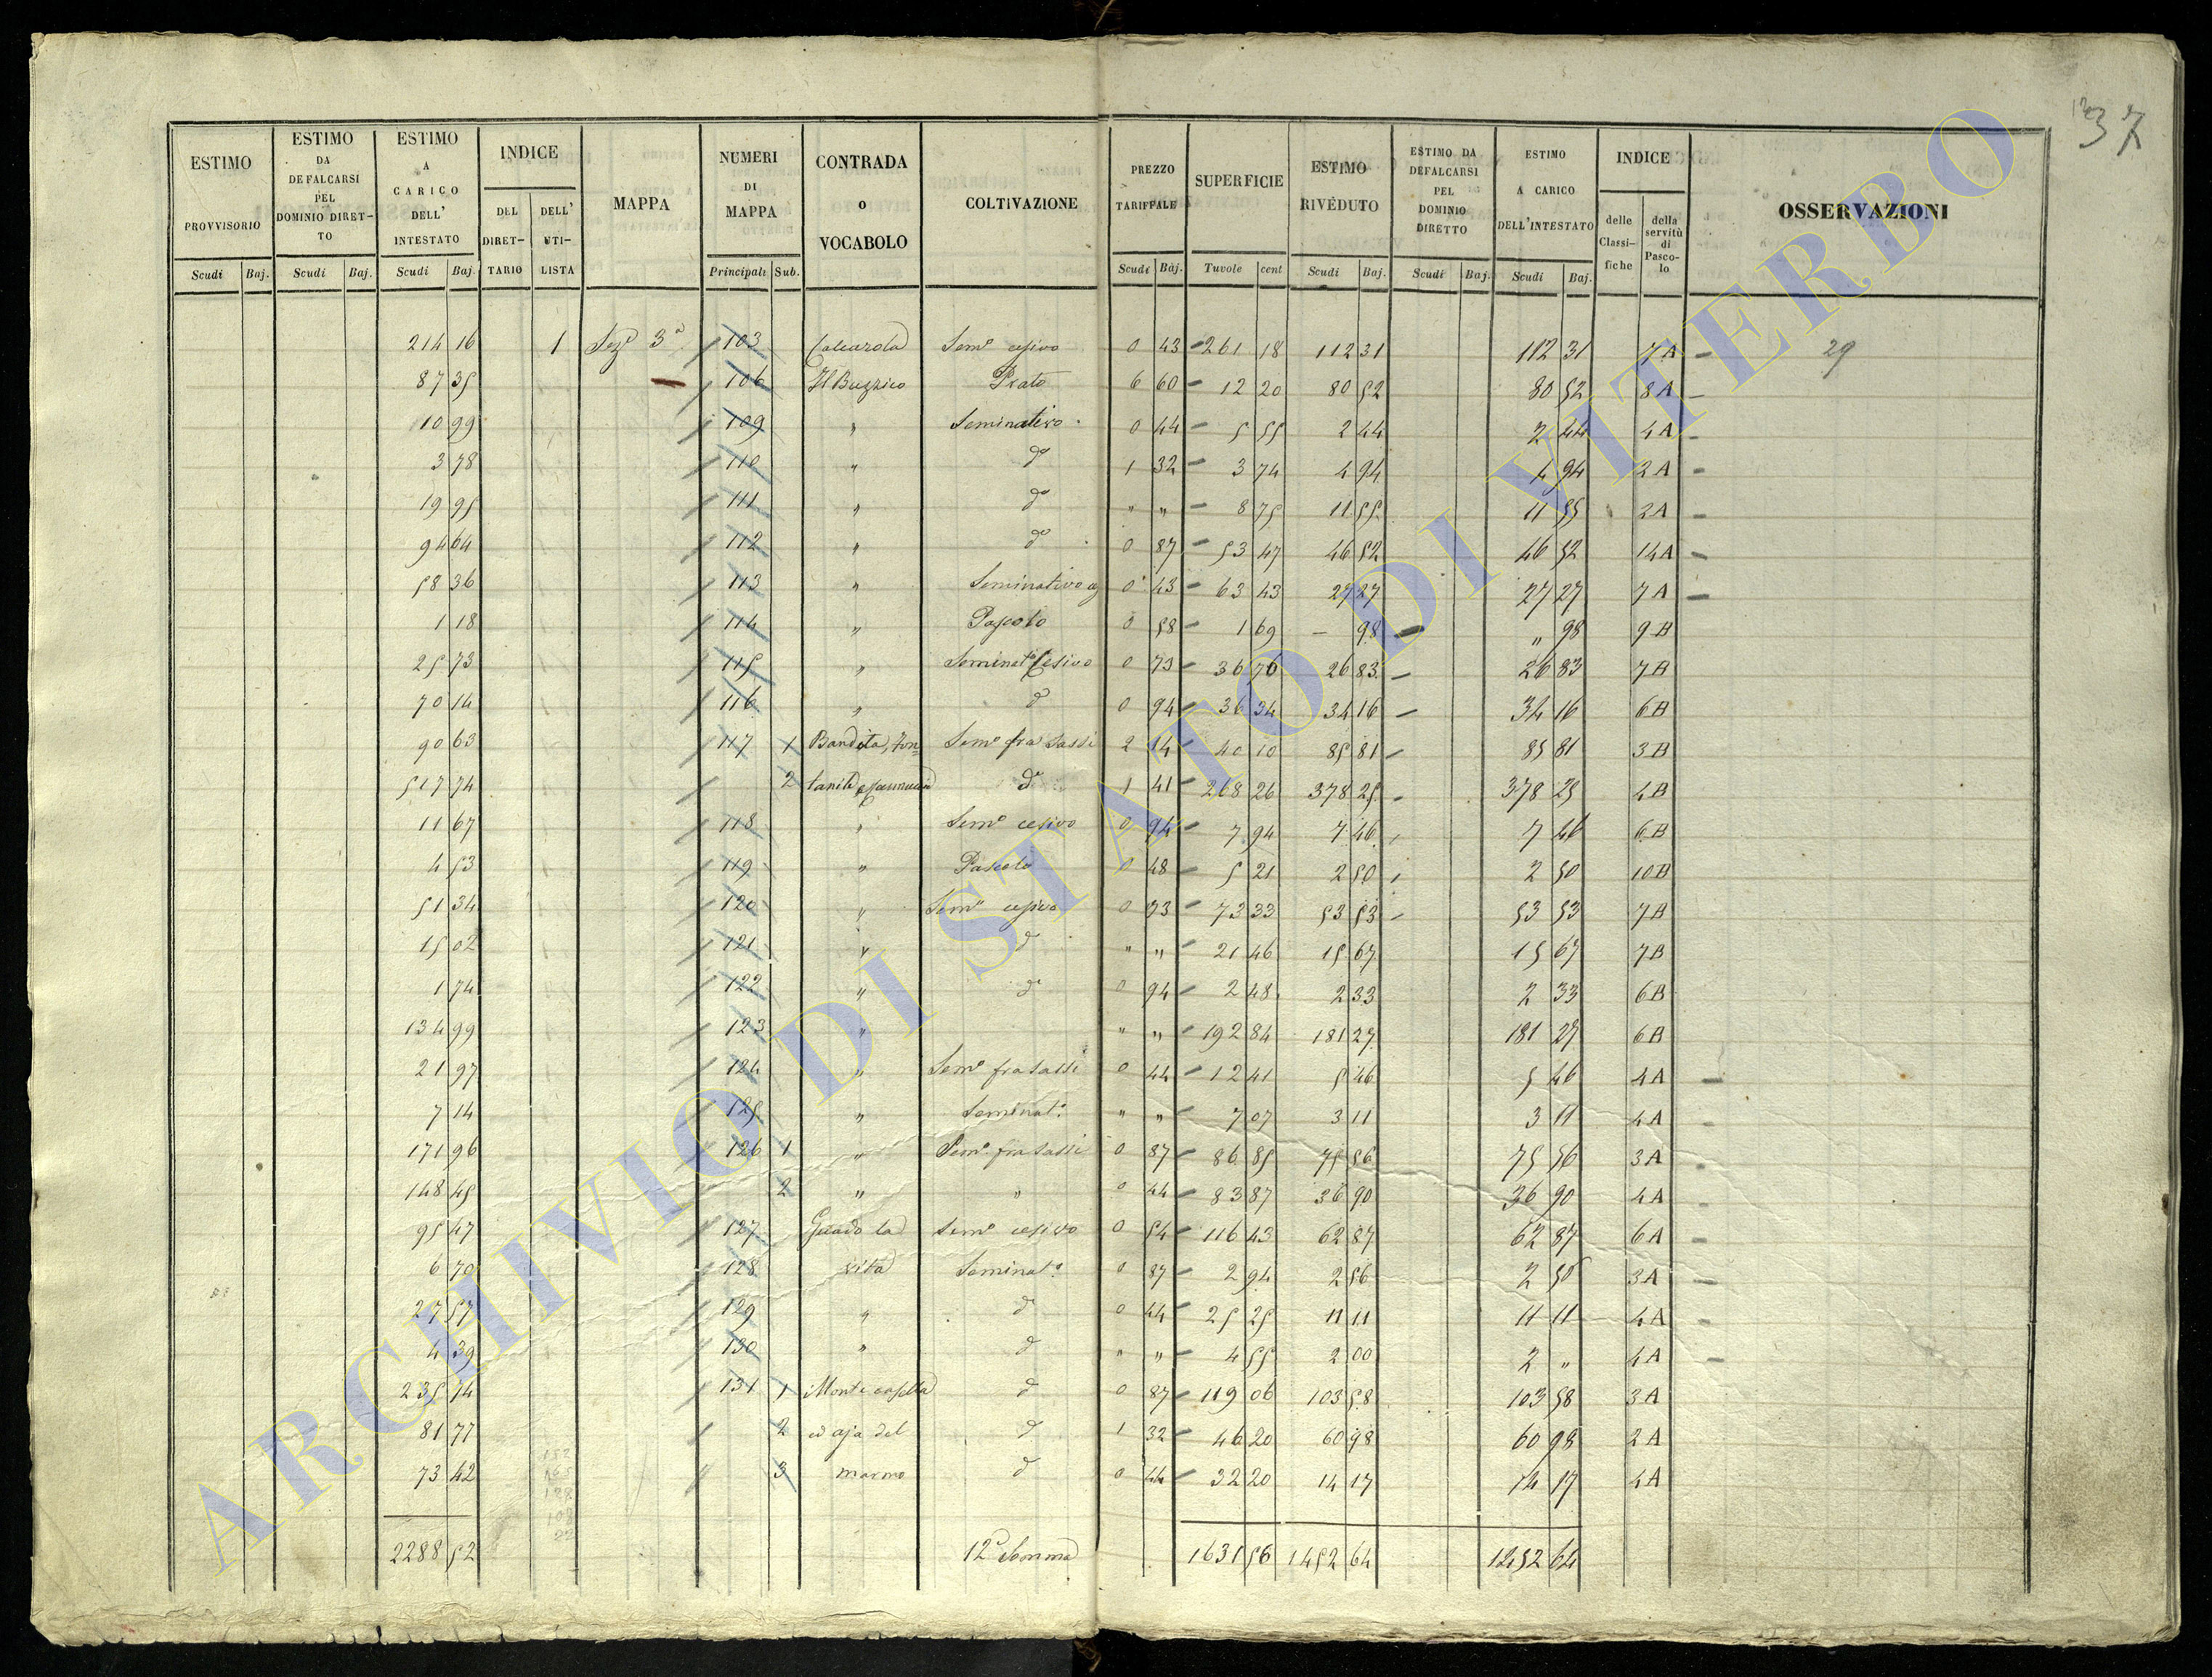 37
ESTIMO PROVVISORIO Scudi Baj. | ESTIMO DA DEFALCARSI PEL DOMINIO DIRETTO Scudi Baj. | ESTIMO A CARICO DELL' INTESTATO Scudi Baj. | INDICE DEL DIRETTARIO DELL' UTILISTA | MAPPA | NUMERI DI MAPPA Principali Sub. | CONTRADA o VOCABOLO | COLTIVAZIONE | PREZZO TARIFFALE Scudi Baj. | SUPERFICIE Tavole cent | ESTIMO RIVEDUTO Scudi Baj. | ESTIMO DA DEFALCARSI PEL DOMINIO DIRETTO Scudi Baj. | ESTIMO A CARICO DELL'INTESTATO Scudi Baj. | INDICE delle Classifiche della servitù di Pascolo | OSSERVAZIONI
214 16 1 Sez.e 3a 103 Calcarola Sem.o cesivo 0 43 261 18 112 31 112 31 7A 29
87 35 106 Il Buzzico Prato 6 60 12 20 80 52 80 52 8A
10 99 109 " Seminativo 0 44 5 55 2 44 2 44 4A
3 78 110 " do 1 32 3 74 4 94 4 94 2A
19 95 111 " do " " 8 75 11 55 11 55 2A
94 64 112 " do 0 87 53 47 46 52 46 52 14A
58 36 113 " Seminativo 0 43 63 43 27 27 27 27 7A
1 18 114 " Pascolo 0 58 1 69 – 98 " 98 9B
25 73 115 " Seminat.o Cesivo 0 73 36 76 26 83 26 83 7B
70 14 116 " d 0 94 36 34 34 16 34 16 6B
90 63 117 1 Bandita, Fon= Sem.o fra sassi 2 14 40 10 85 81 85 81 3B
517 74 2 tanile do 1 41 268 26 378 25 378 25 4B
11 67 118 " Sem.o cesivo 0 94 7 94 7 46 7 46 6B
4 53 119 " Pascolo 0 48 5 21 2 50 2 50 10B
51 34 120 " Sem.o cesivo 0 73 73 33 53 53 53 53 7B
15 02 121 " d " " 21 46 15 67 15 67 7B
1 74 122 " do 0 94 2 48 2 33 2 33 6B
134 99 123 " " " 192 84 181 27 181 27 6B
21 97 124 " Sem.o fra sassi 0 44 12 41 5 46 5 46 4A
7 14 125 " Seminat.o " " 7 07 3 11 3 11 4A
171 96 126 1 " Sem.o fra sassi 0 87 86 85 75 56 75 56 3A
148 45 2 " " 0 44 83 87 36 90 36 90 4A
95 47 127 Guado la Sem.o cesivo 0 54 116 43 62 87 62 87 6A
6 70 128 vita Seminat.o 0 87 2 94 2 56 2 56 3A
27 57 129 " d 0 44 25 25 11 11 11 11 4A
4 39 130 " d " " 4 55 2 00 2 " 4A
235 74 131 1 Monte casella d 0 87 119 06 103 58 103 58 3A
81 77 2 ed aja del d 1 32 46 20 60 98 60 98 2A
73 42 3 marmo d 0 44 32 20 14 17 14 17 4A
2288 52 12a Somma 1631 56 1452 64 1452 64
ARCHIVIO DI STATO DI VITERBO